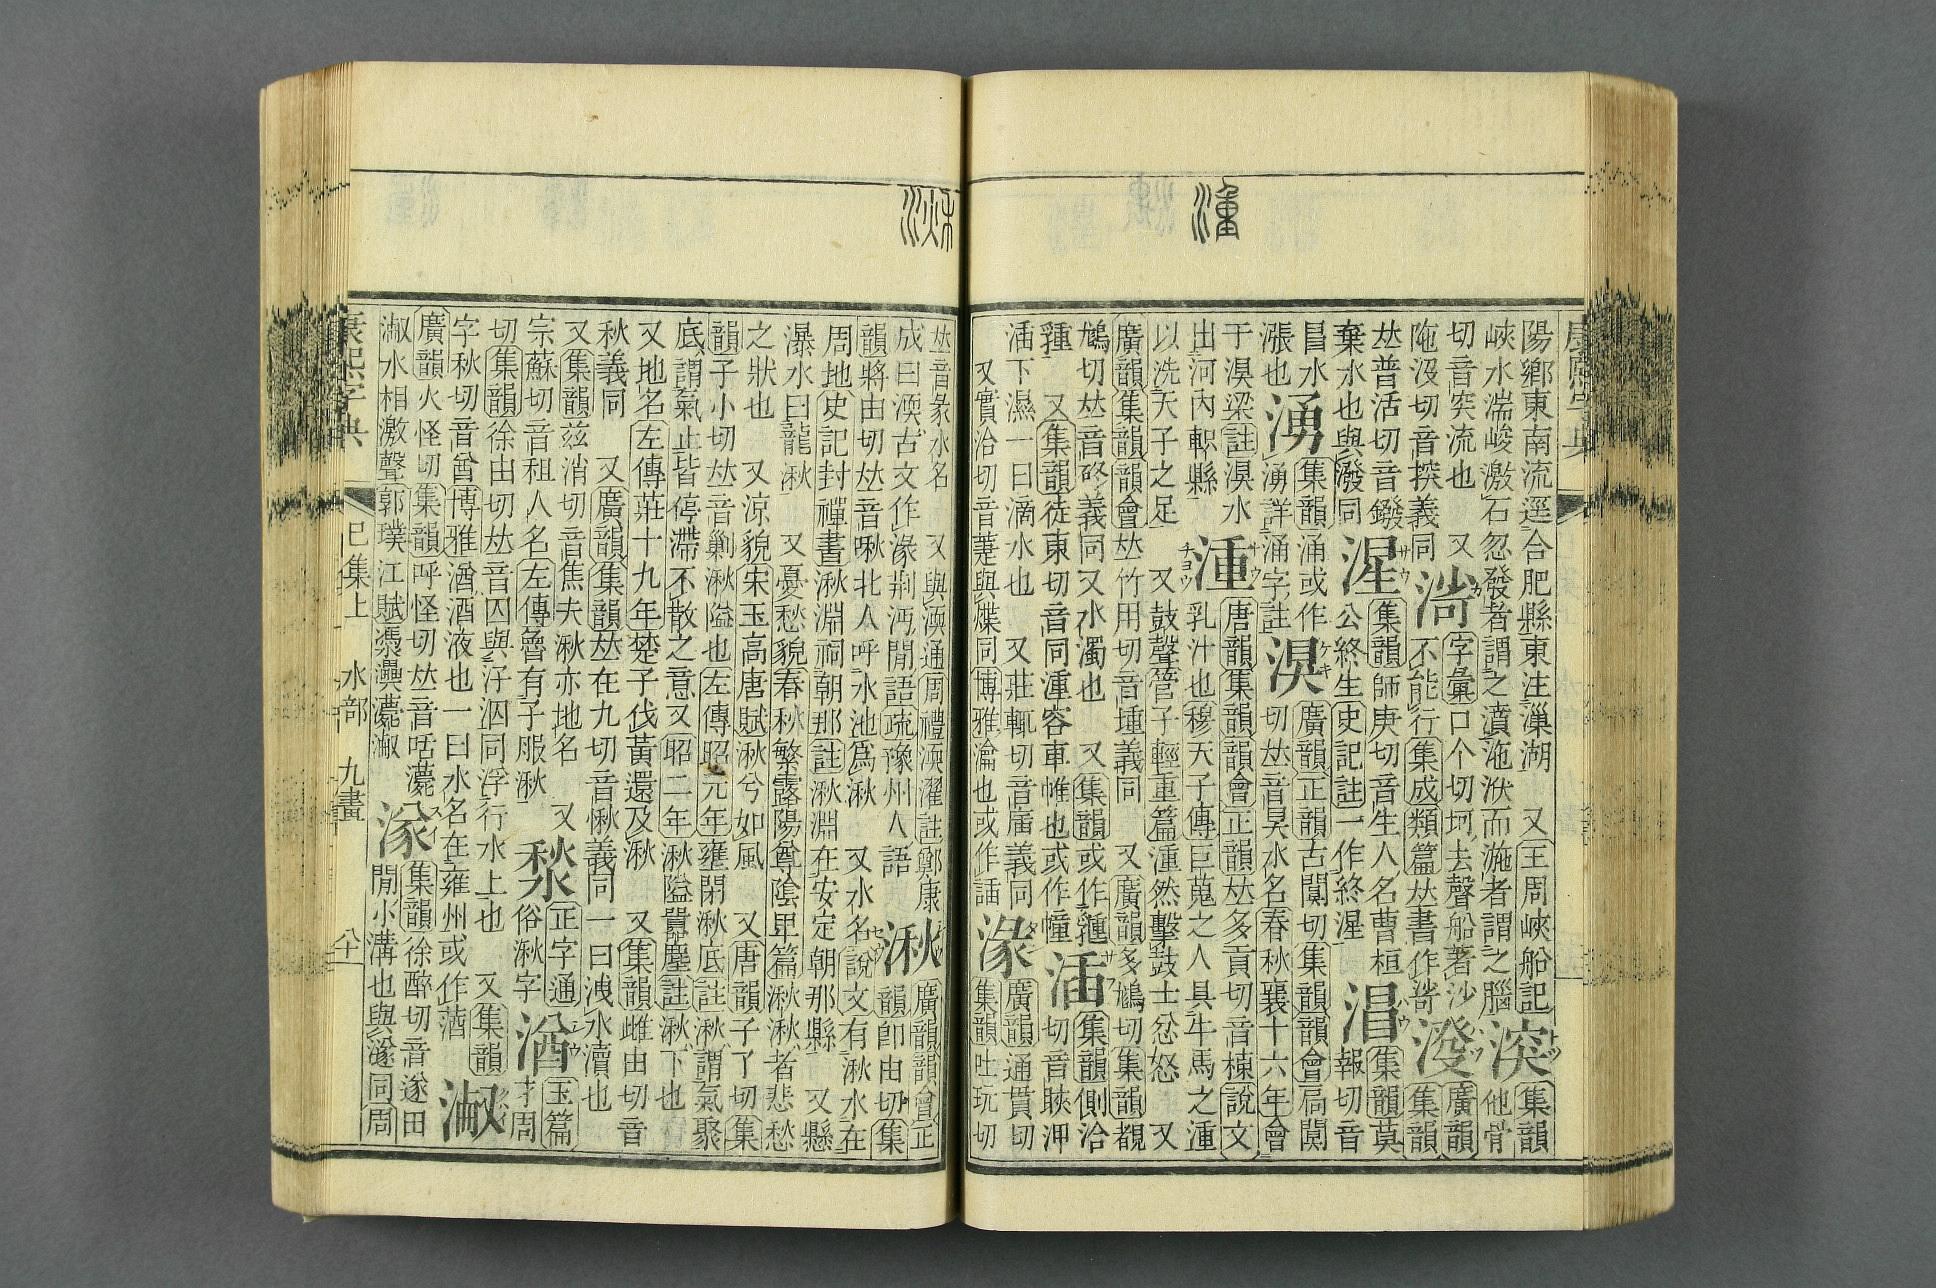 湩
康熙字典
陽鄉東南流逕合肥縣東注漅湖　又王周峽船記
峽水湍峻激石忽發者謂之濆沲洑而漩者謂之腦
湥
集韻
他骨
切音突流也　又
沲沒切音揬義同
渮
字彙口个切坷去聲船著沙
不能行集成類篇𠀤書作㴰
潑
廣韻
集韻
𠀤普活切音鏺
棄水也與潑同
湦
集韻師庚切音生人名曹桓
公終生史記註一作終湦
㴘
集韻莫
報切音
昌水
漲也
湧
集韻涌或作
湧詳涌字註
湨
廣韻正韻古闃切集韻韻會扃闃
切𠀤音狊水名春秋襄十六年會
于湨梁註湨水
出河內軹縣
湩
唐韻集韻韻會正韻𠀤多貢切音棟說文
乳汁也穆天子傳巨蒐之人具牛馬之湩
以洗天子之足　又鼓聲管子輕重篇湩然擊鼓士忿怒　又
廣韻集韻韻會𠀤竹用切音㨃義同　又廣韻多鳩切集韻覩
鳩切𠀤音硿義同又水濁也　又集韻或作
𩍅　又集韻徒東切音同湩容車帷也或作幢
湁
集韻側洽
切音眨浹渫
湁下濕一曰滴水也　又莊輒切音㡇義同
又實洽切音萐與煠同博雅瀹也或作𧨾
湪
廣韻通貫切
集韻吐玩切
湫
𠀤音彖水名　又與渜通周禮渜濯註鄭康
成曰渜古文作湪荆沔閒語疏豫州人語
湫
廣韻韻會正
韻卽由切集
韻將由切𠀤音啾北人呼水池爲湫　又水名說文有湫水在
周地史記封禪書湫淵祠朝那註湫淵在安定朝那縣　又縣
瀑水曰龍湫　又憂愁貌春秋繁露陽尊隂𤰞篇湫湫者悲愁
之狀也　又涼貌宋玉高唐賦湫兮如風　又唐韻子了切集
韻子小切𠀤音剿湫隘也左傳昭元年壅閉湫底註湫謂氣聚
底謂氣止皆停滯不散之意又昭二年湫隘囂塵註湫下也
又地名左傳莊十九年楚子伐黃還及湫　又集韻雌由切音
秋義同　又廣韻集韻𠀤在九切音愀義同一曰洩水瀆也
又集韻兹消切音焦夫湫亦地名　又
宗蘇切音租人名左傳魯有子服湫
湬
正字通
俗湫字
湭
玉篇
才周
切集韻徐由切𠀤音囚與汓泅同浮行水上也　又集韻
字秋切音酋博雅酒酒液也一曰水名在雍州或作湭
㴽
廣韻火怪切集韻呼怪切𠀤音咶㶔
㴽水相激聲郭璞江賦漰㶔㶔㴽
㴚
集韻徐醉切音遂田
閒小溝也與𨗹同周
康熙字典　巳集上　水部　九畫　八十